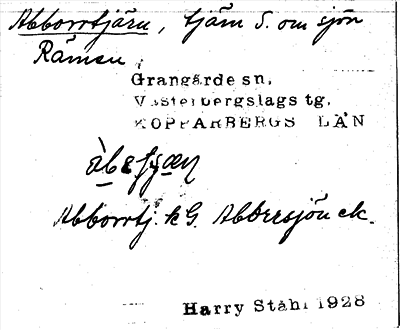 Abborrtjärn, tjärn S. om sjön
Rämen
Grangärde sn,
Västerbergslags tg,
KOPPARBERGS LÄN
Abborrtj. k G. Abborsjön ek.
Harry Ståhl 1928